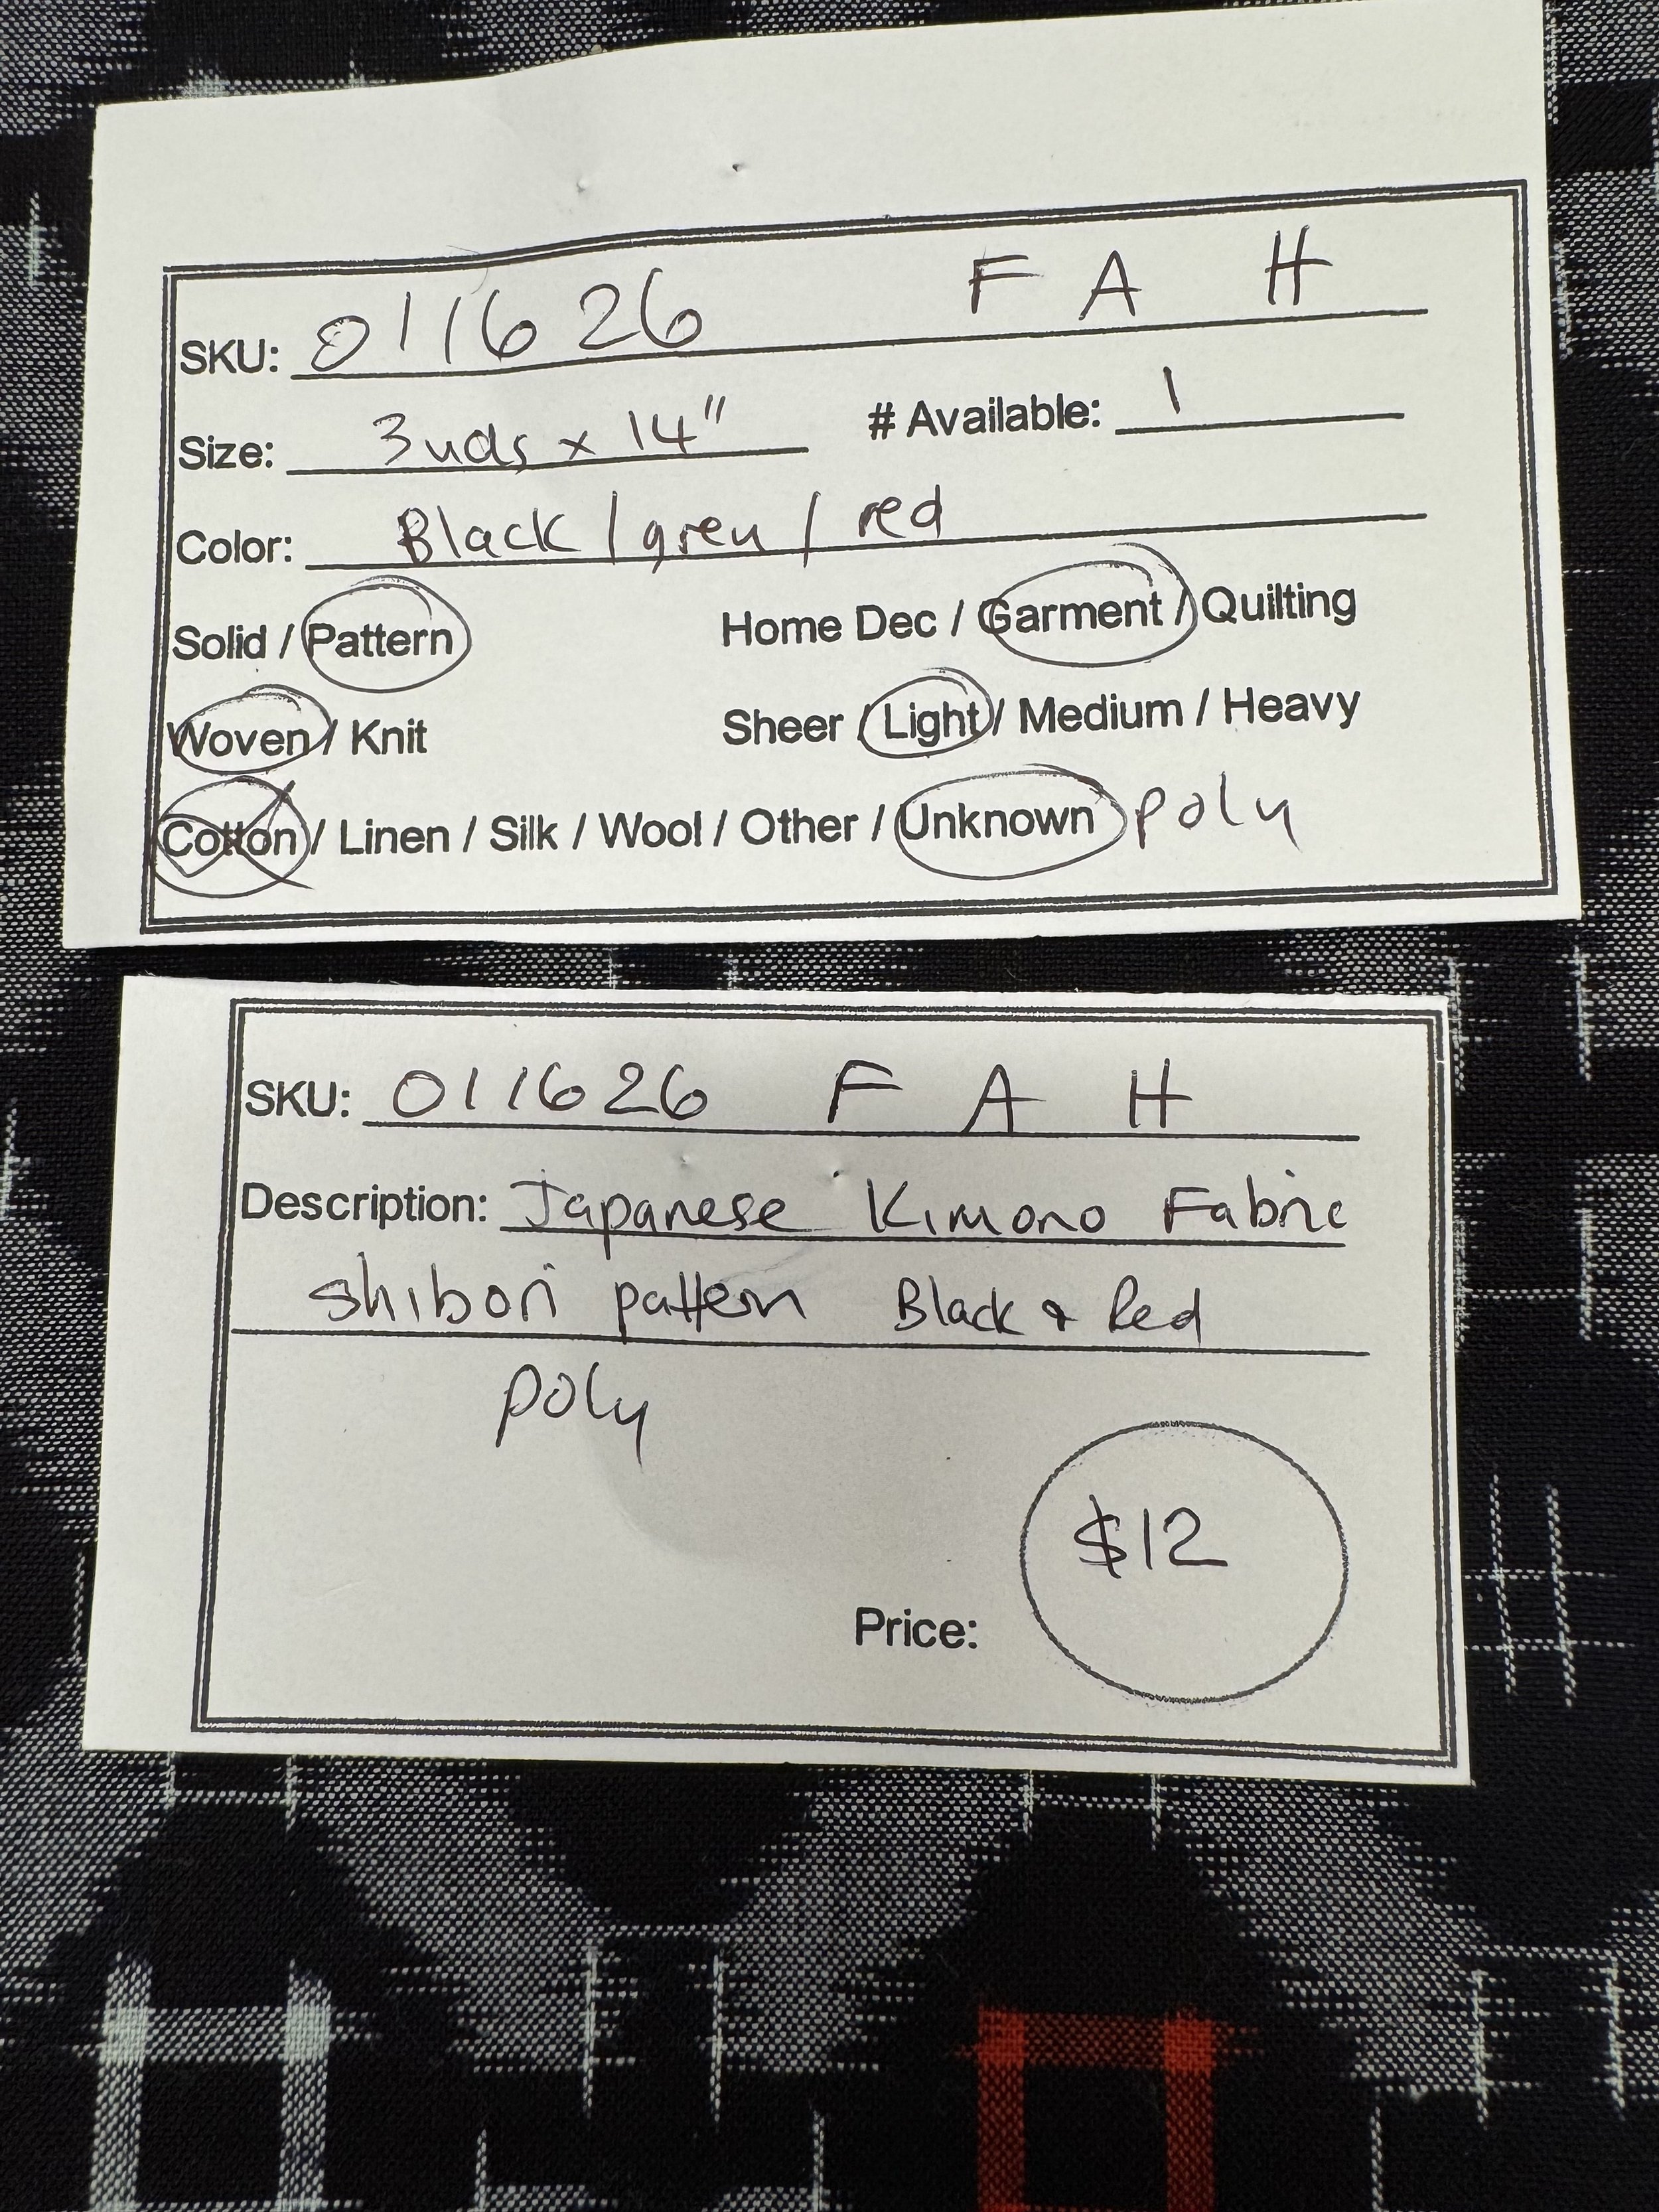 SKU: 011626 F A H
Size: 3yds x 14" # Available: 1
Color: Black / grey / red
Solid / Pattern Home Dec / Garment / Quilting
Woven / Knit Sheer / Light / Medium / Heavy
Cotton / Linen / Silk / Wool / Other / Unknown poly
SKU: 011626 F A H
Description: Japanese Kimono Fabric
shibori pattern Black & Red
poly
$12
Price: